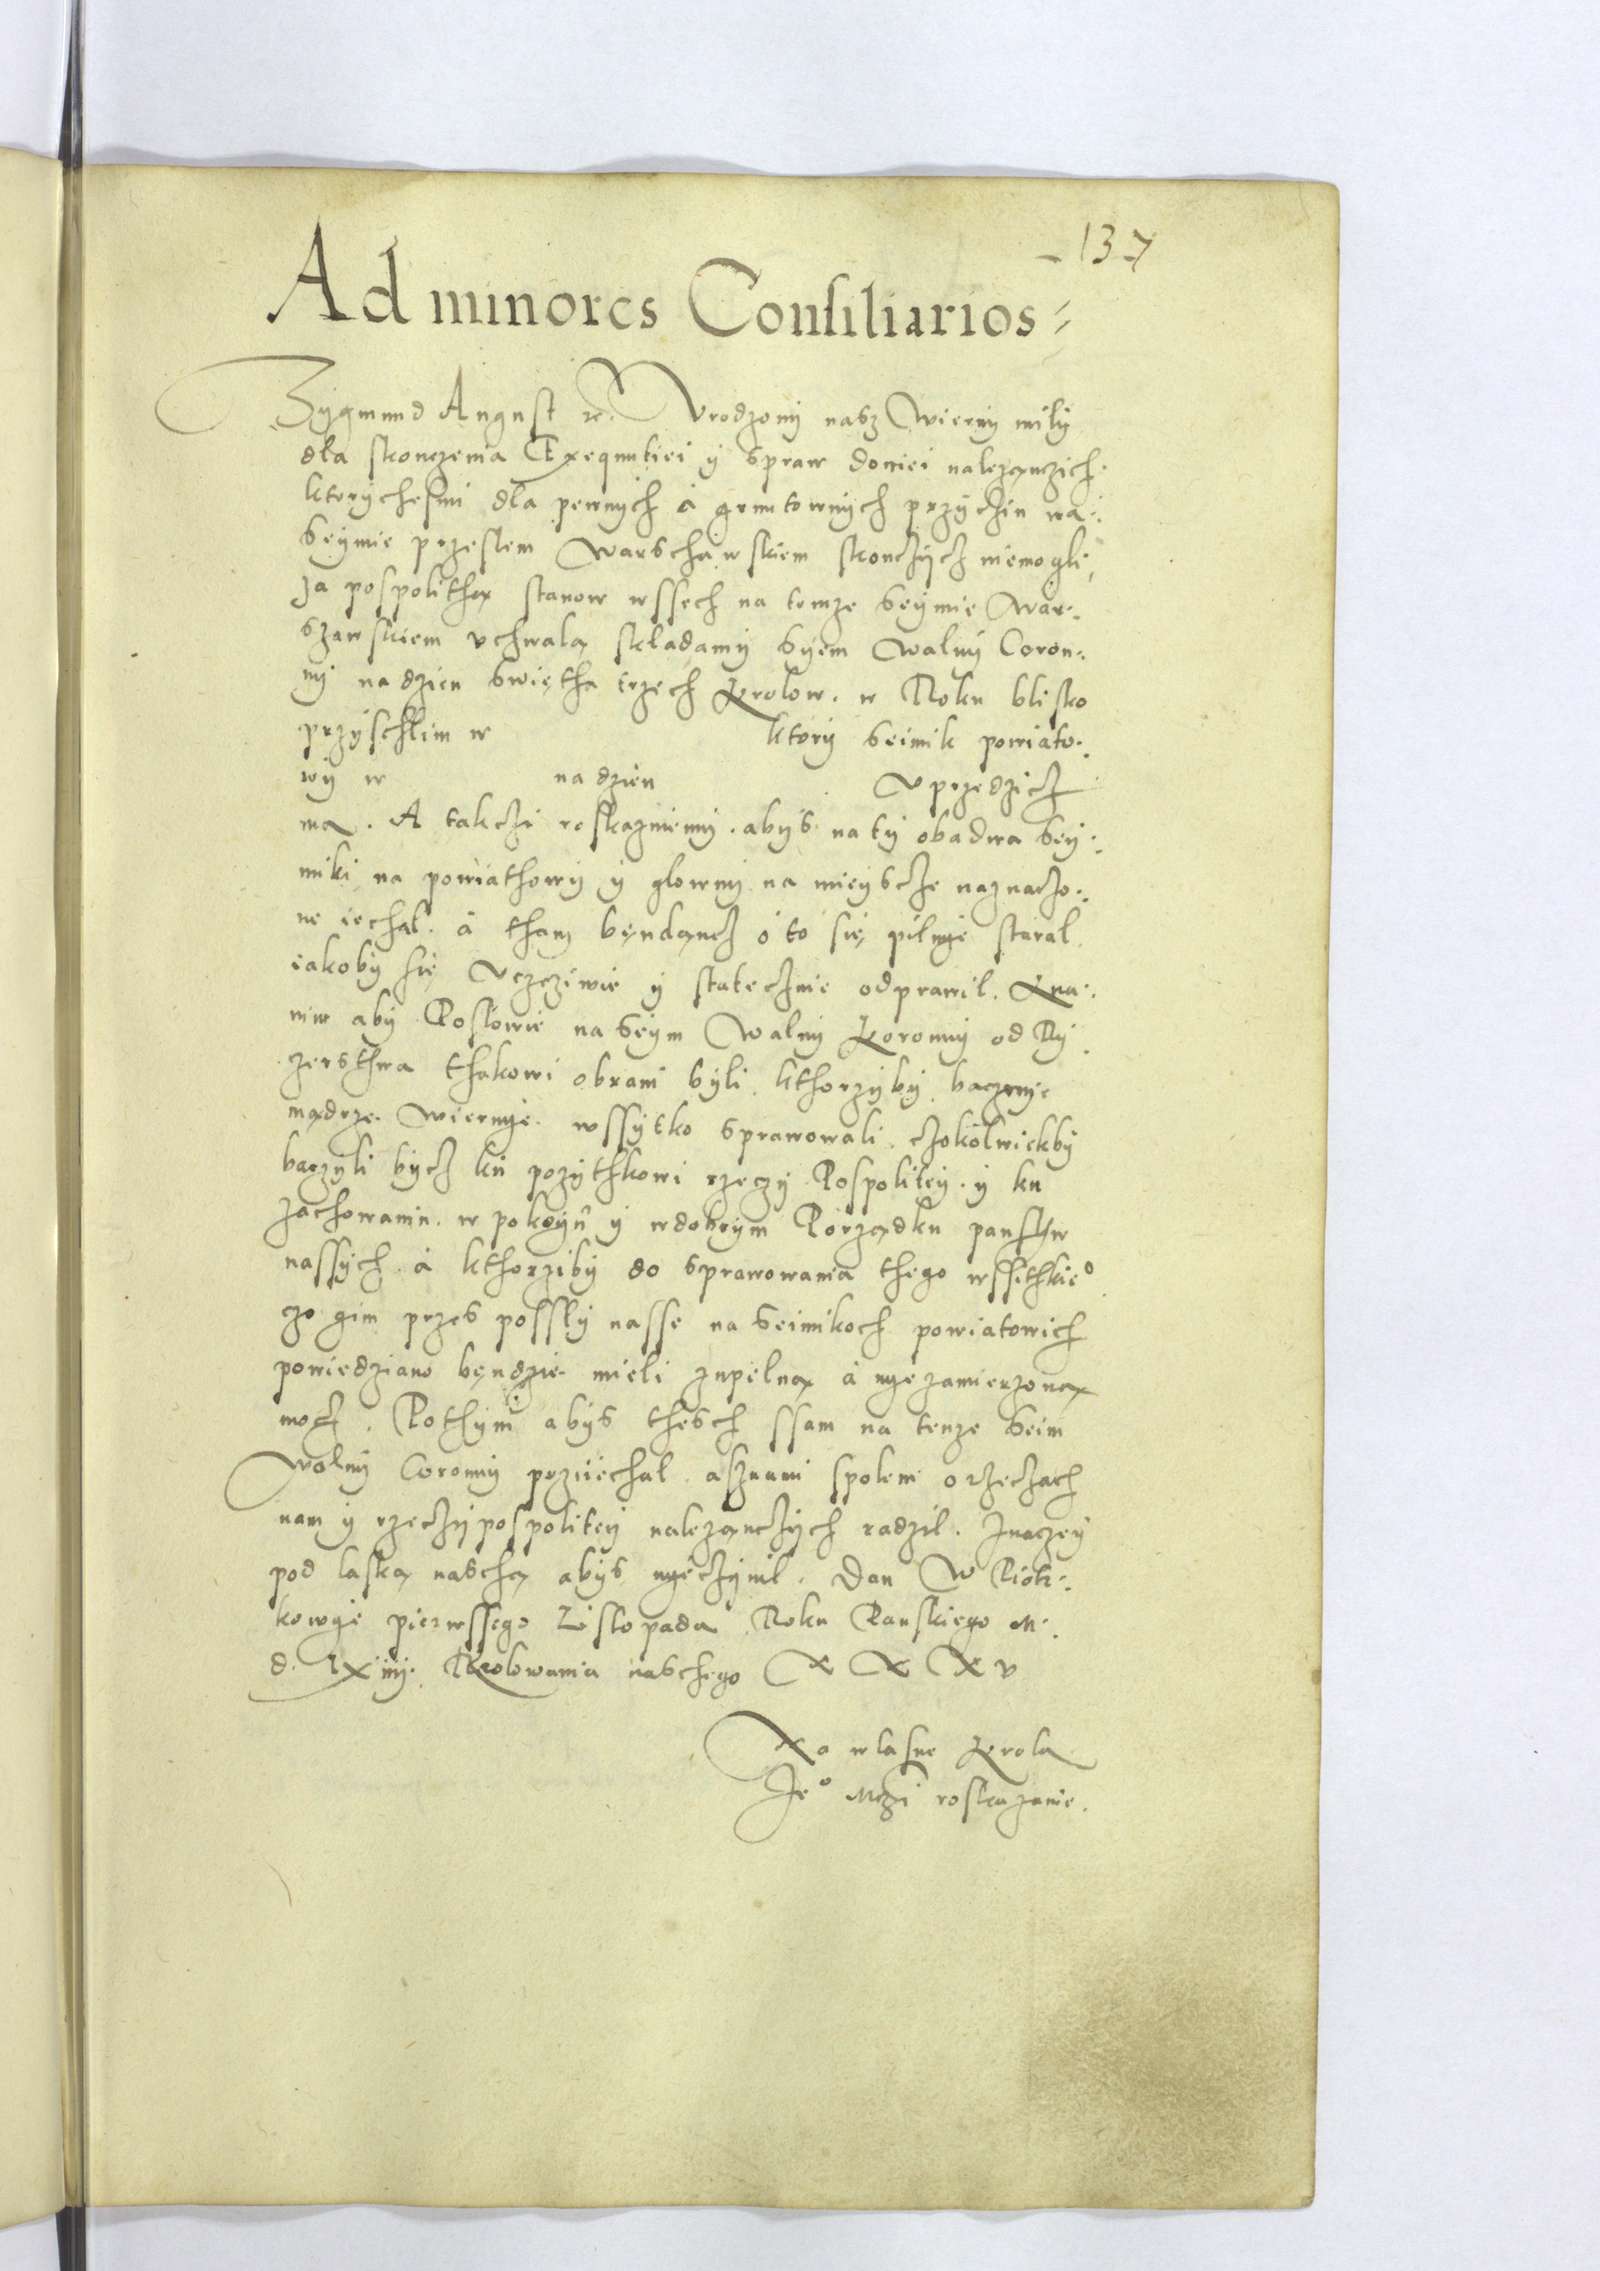 137
Ad minores Consiliarios
Zygmund August etc. Vrodzony nasz Wierny mily
dla skonczenia Exequutiei y spraw doniei nalezączich
ktorychesmi dla pewnych á gruntownych przyczin na
Seymie przeslem Warschawskiem skonczycz niemogli,
za pospolithą stanow wssech na temze Seymie War-
szawskiem vchwalą skladamy Syem Walny Coron-
ny na dzien Swiętha trzech Krolow. w Roku blisko
przyschlim w ktory Seimik powiato-
wy w na dzien vprzedzicz
ma. A takczi roskazuiemy. abys na ty obadwa Sey-
miki na powiathowy y glowny na mieyscze naznaczo-
ne iechal. á tham będącz o to się pilnye staral
iakoby się vczcziwie y statecznie odprawil. Zna-
miw aby Poslowie na Seym Walny Koronny od Ry
zerstwa thakowi obrani byli. kthorzyby bacznye
mądrze. Wiernye. wssytko sprawowali. czokolwiekby
baczyli bycz ku pozythkowi rzeczy Pospolitey. y ku
zachowaniu. w pokoyu y wdobrym Porządku panstw
nassych. á kthorziby do sprawowania thego wssithkieo
czo gim przes possly nasse na Seimikoch powiatowich
powiedziano będzie. mieli zupelną á nyezamierzoną
mocz. Pothym abys thesch ssam na tenze Seim
Wolny Coronny prziiechal. asznami spolem o rzeczach
nam y rzeczypospolitey nalezączych radzil. Inaczey
pod laską naschą abys nyeczynil. Dan W Piotr-
kowye pierwssego Listopada Roku Panskiego M.
d. lxiiij. Krolowania naschego XXXv
Na wlasne Krola
Jeo Mczi roskazanie.